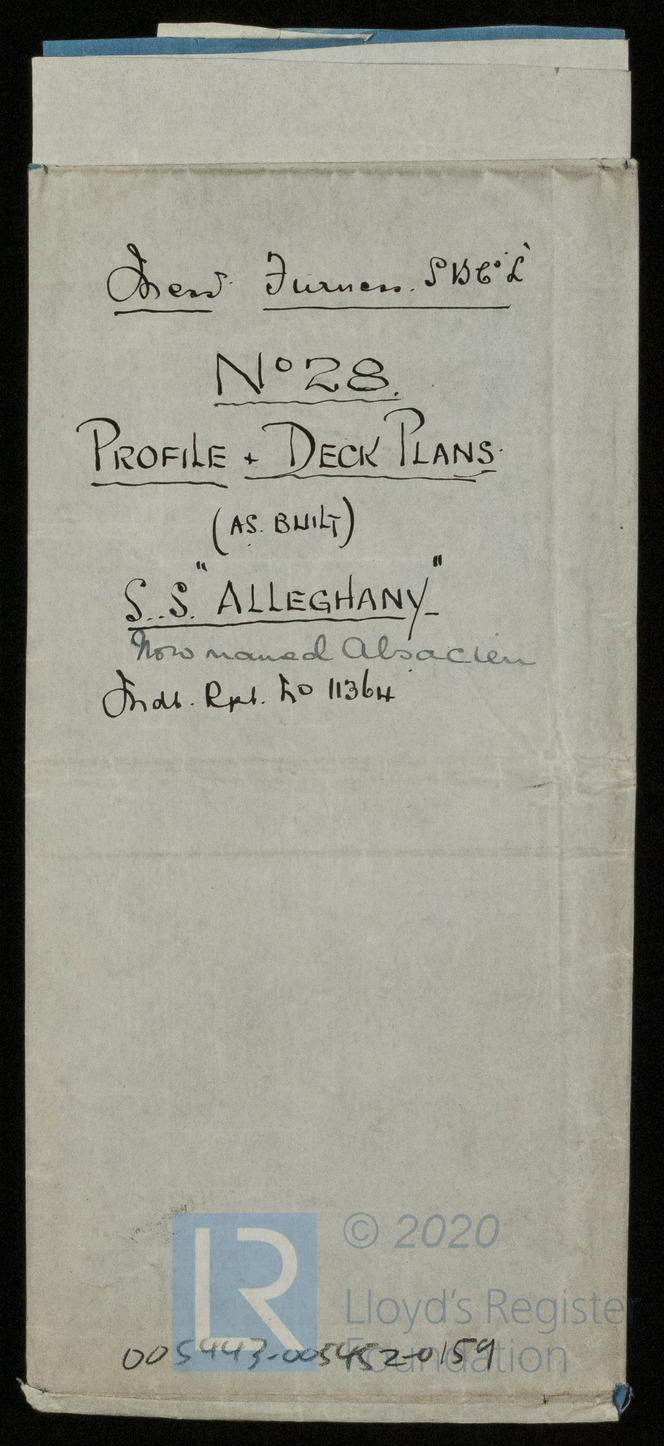 Mess. Furness. S B Co Ld
No 28.
PROFILE + DECK PLANS.
(AS. BUILT)
S.S. "ALLEGHANY"
Now named Alsacien
Mdb. Rpt. No 11364
© 2020
LR
Lloyd's Register
Foundation
005443-005452-0159